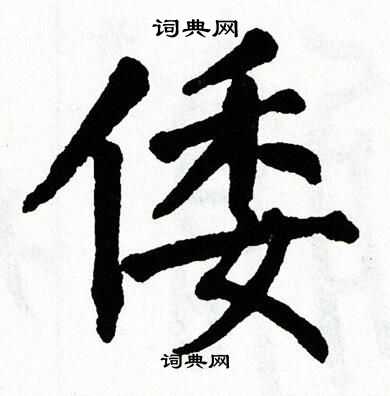 词典网
倭
词典网